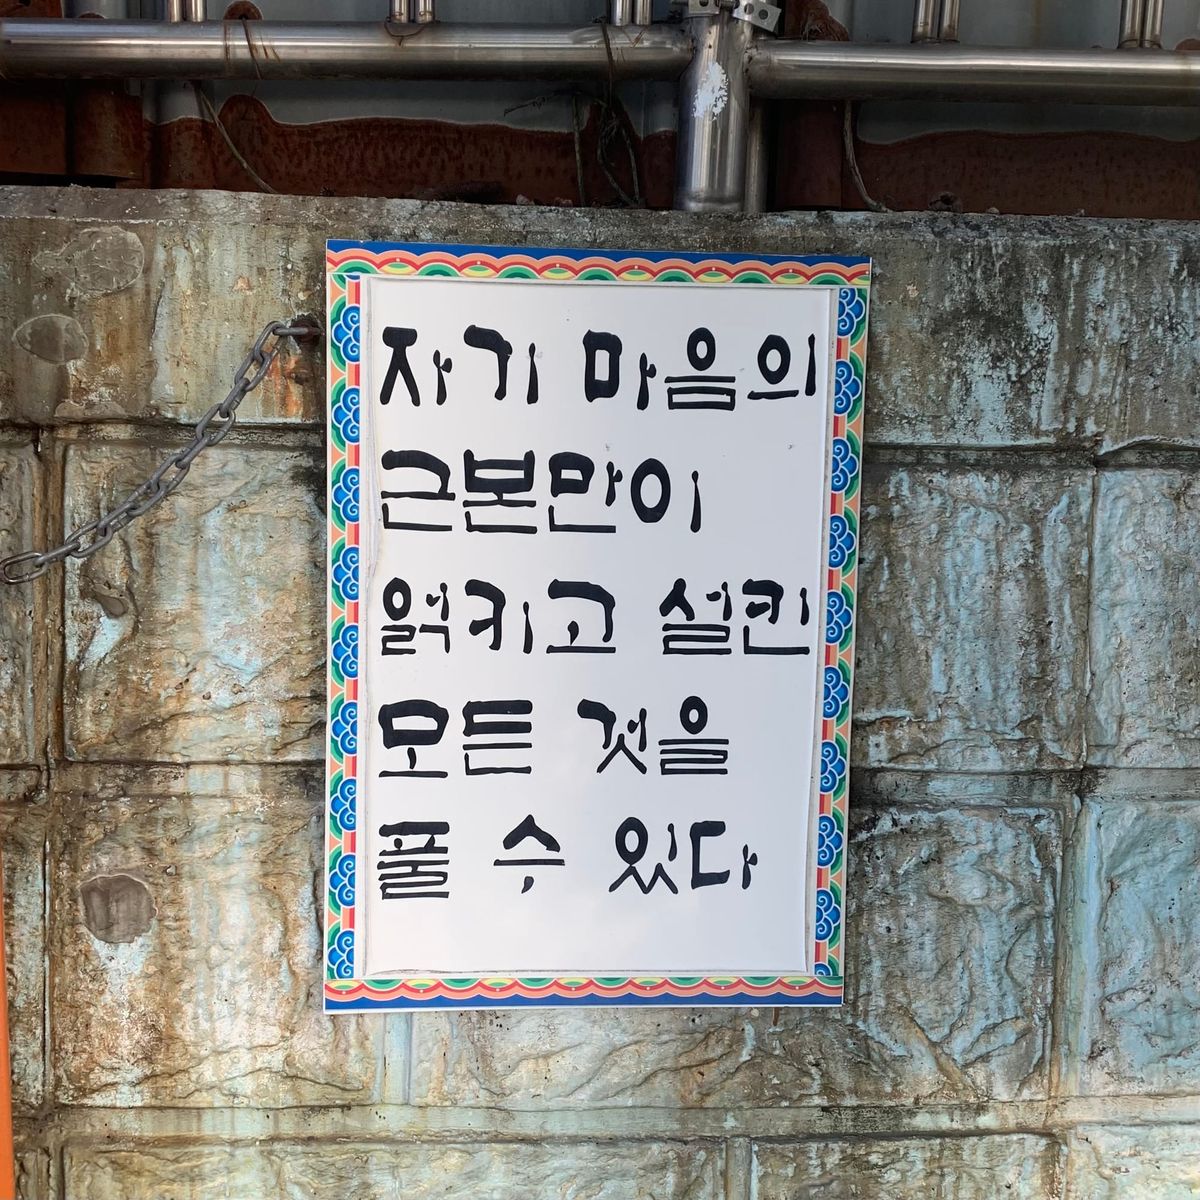 자기 마음의
근본만이
읽키고 설킨
모든 것을
풀 수 있다